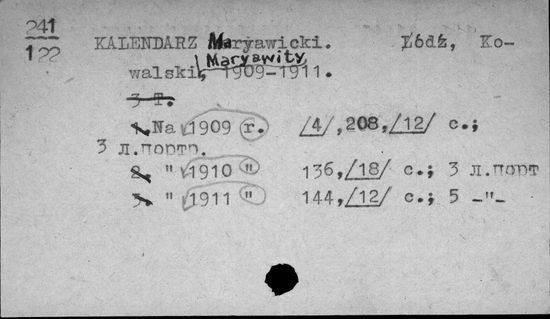 241
122
KALENDARZ Maryawicki. Łódź, Ko-
Maryawity
walski, 1909-1911.
3 T.
1. Na 1909 r. /4/,208,/12/ с.;
3 л.портр.
2. " 1910 " 136,/18/ с.; 3 л.порт
3. " 1911 " 144,/12/ с.; 5 -"-